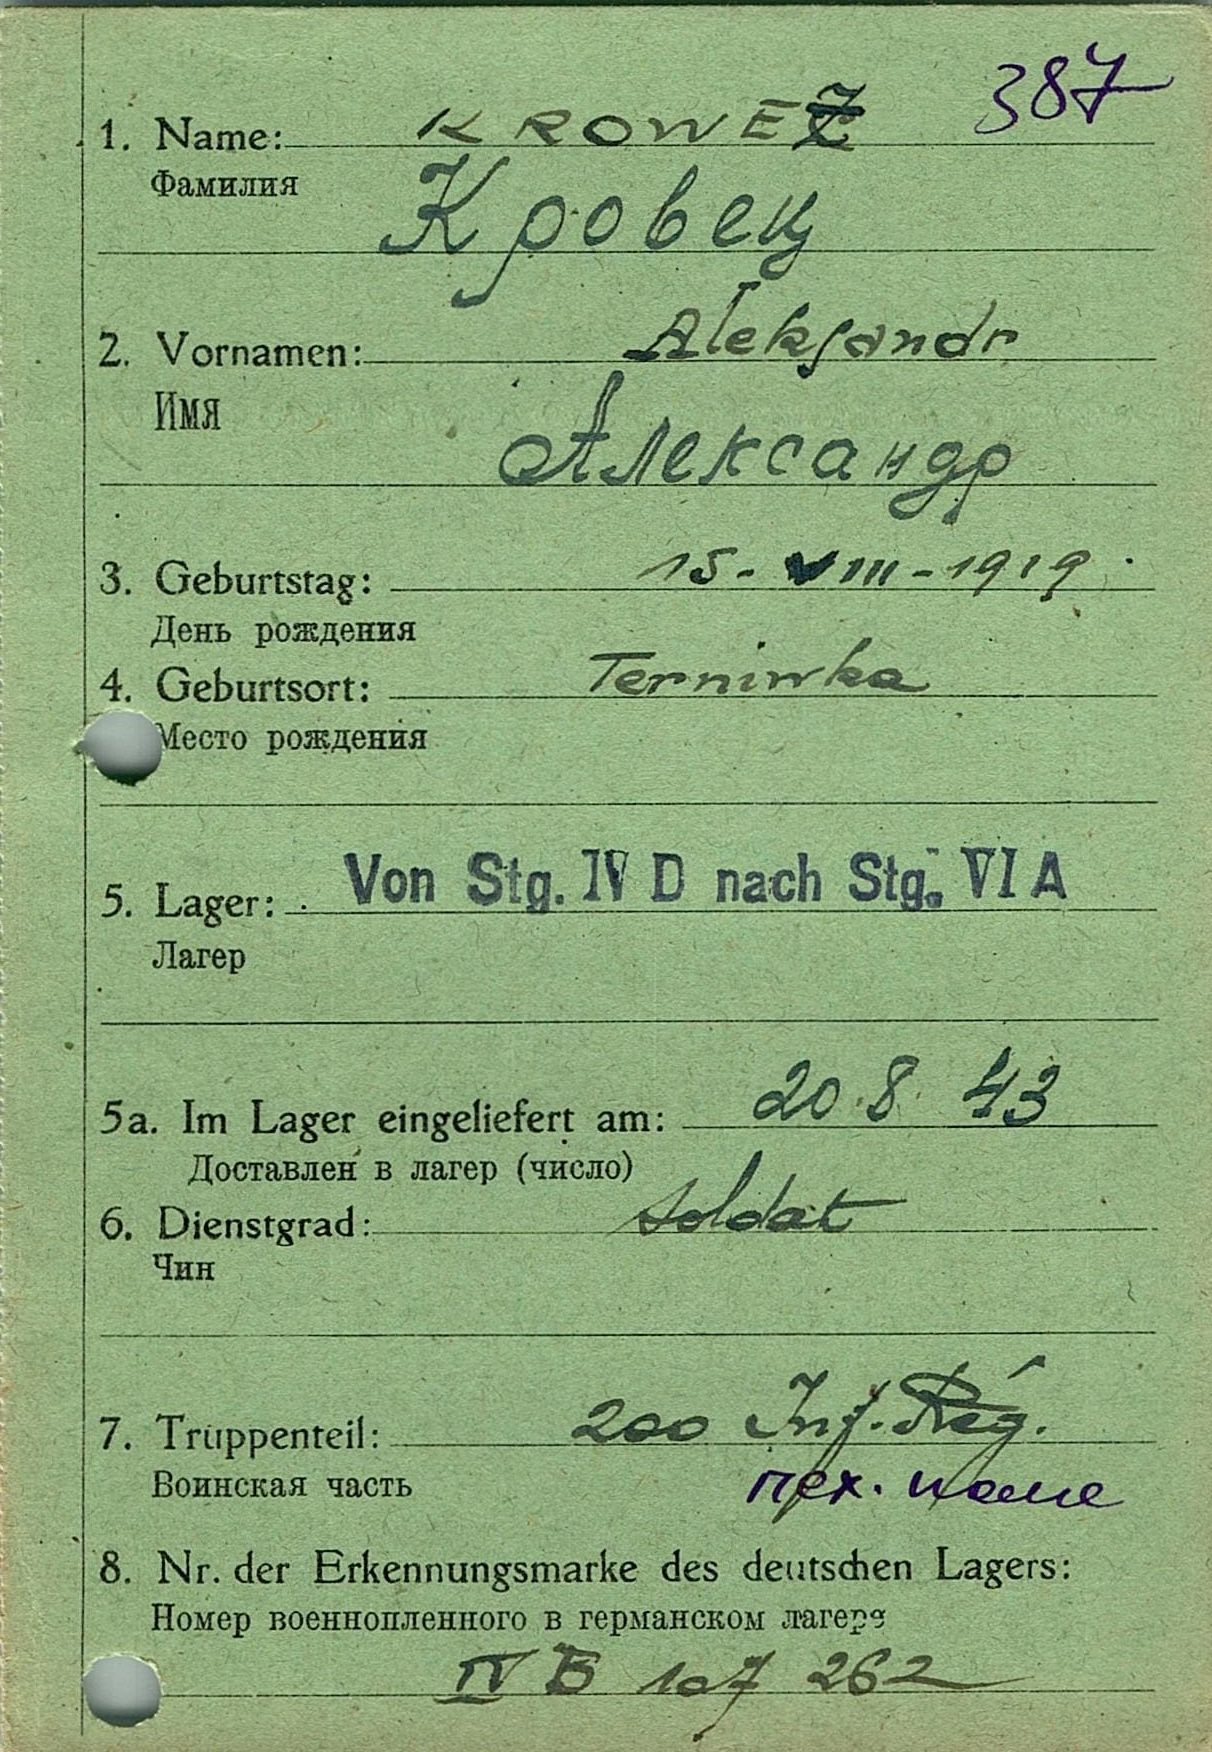 387
1. Name: KROWEZ
Фамилия
Кровец
2. Vornamen: Aleksandr
Имя
Александр
3. Geburtstag: 15. VIII - 1919
День рождения
4. Geburtsort: Terniwka
Место рождения
5. Lager: Von Stg. IV D nach Stg. VI A
Лагер
5a. Im Lager eingeliefert am: 20. 8. 43
Доставлен в лагер (число)
6. Dienstgrad: soldat
Чин
7. Truppenteil: 200 Inf. Reg.
Воинская часть пех.
8. Nr. der Erkennungsmarke des deutschen Lagers:
Номер военнопленного в германском лагере
IV B 107 262